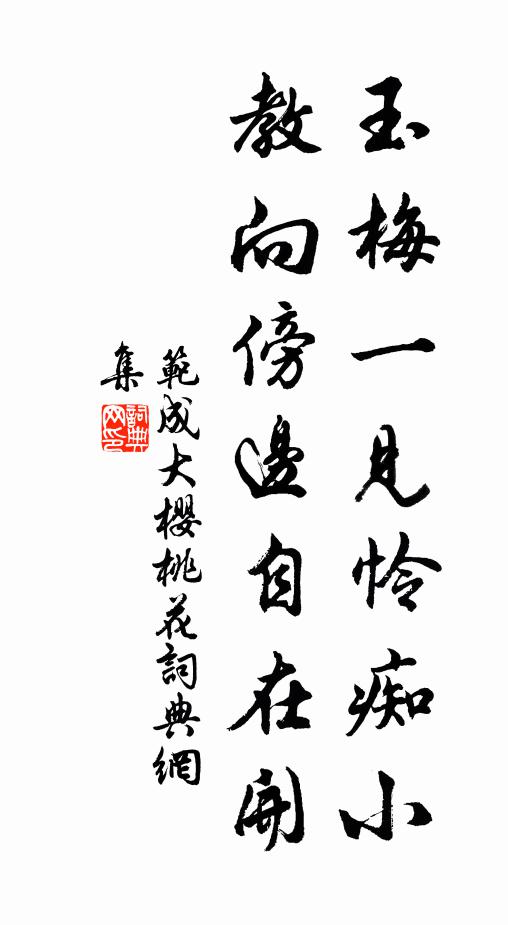 玉梅一見怜痴小
教向傍邊自在開
範成大櫻桃花詞典網
集
詞典
网印